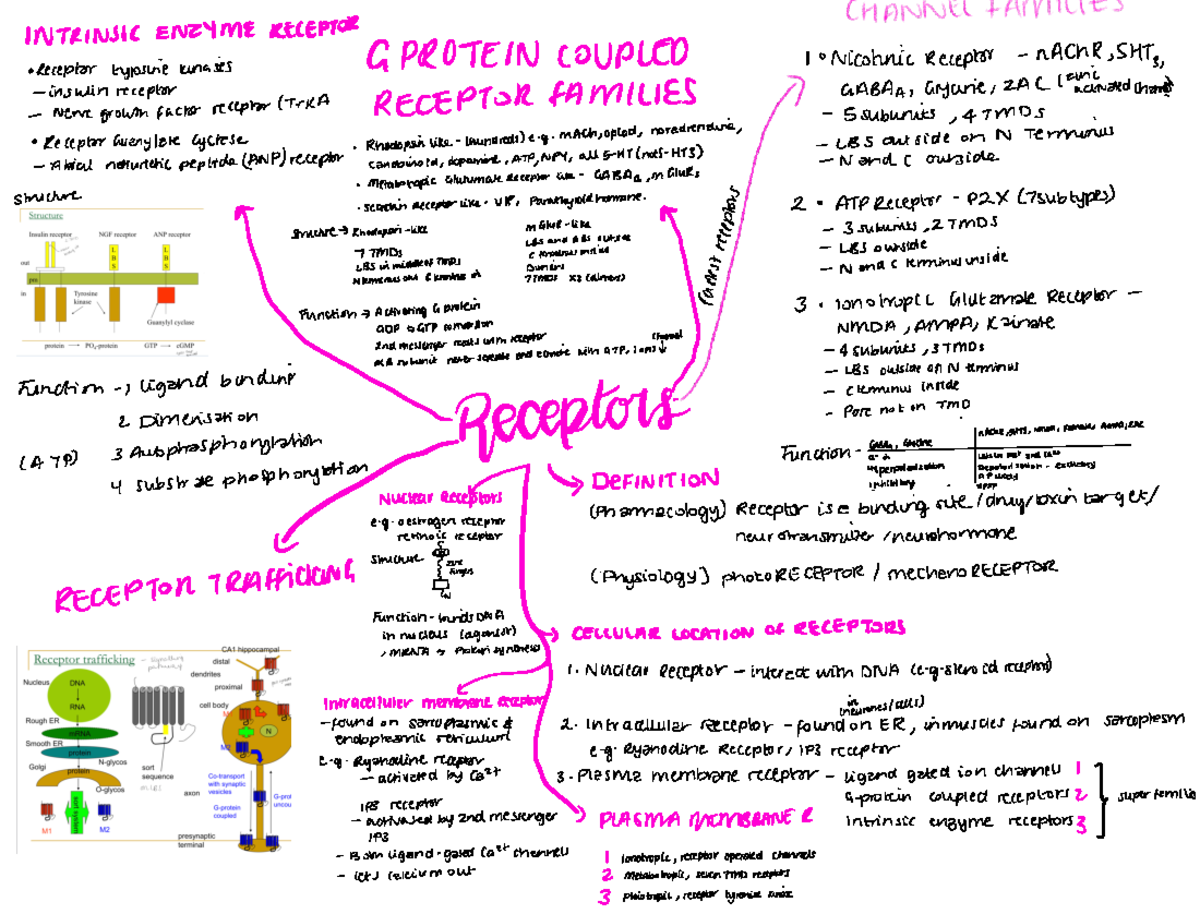 CHANNEL FAMILIES
INTRINSIC ENZYME RECEPTOR
• Receptor tyrosine kinases
- insulin receptor
- Nerve growth factor receptor (TrKA
• Receptor Guanylate Cyclase
- Atrial naturetic peptide (ANP) receptor
Structure
Structure
Insulin receptor
NGF receptor
ANP receptor
L
B
S
L
B
S
out
pm
in
Tyrosine
kinase
Guanylyl cyclase
protein → PO₄-protein
GTP → cGMP
Function -, ligand binding
2 Dimerisation
(ATP)
3 Autophosphorylation
4 substrate phosphorylation
G PROTEIN COUPLED
RECEPTOR FAMILIES
• Rhodopsin like - (hundreds) e.g. mACh, opiod, noradrenaline,
cannabinoid, dopamine, ATP, NPY, all 5-HT (not 5-HT3)
• Metabotropic Glutamate Receptor like - GABA, mGluRs
• Secretin Receptor like - VIP, Parathyroid hormone.
Structure → Rhodopsin-like
7 TMDs
LBS in middle of TMDs
N terminus out C terminus in
mGluR-like
LBS and ABS outside
C terminus inside
Dimers
7TMDS X2 (dimers)
Function → Activating G protein
GDP → GTP conversion
2nd messenger reacts with receptor
subunit never separate and combine with ATP, ions ↓
channel
fastest receptors
1 • Nicotinic Receptor - nAChR, 5HT3,
GABAA, Glycine, ZAC (zinc
activated channel)
- 5 subunits, 4 TMDS
- LBS outside on N Terminus
- N and C outside
2 • ATP Receptor - P2X (7 subtypes)
- 3 subunits, 2 TMDS
- LBS outside
- N and C terminus inside
3 • Ionotropic Glutamate Receptor -
NMDA, AMPA, Kainate
- 4 subunits, 3 TMDs
- LBS outside on N terminus
- C terminus inside
- Pore not on TMD
Function -
GABAA, Glycine
Cl-
Hyperpolarization
inhibitory
nAChR, 5HT3, NMDA, Kainate, AMPA, ZAC
Depolarization - excitatory
Receptors
Nuclear Receptors
e.g. oestrogen receptor
retinoic receptor
Structure
zinc
fingers
N
Function - binds DNA
in nucleus (agonist)
, mRNA → Protein synthesis
→ DEFINITION
(Pharmacology) Receptor is a binding site / drug/toxin target/
neurotransmitter /neurohormone
(Physiology) photoRECEPTOR / mechanoRECEPTOR
RECEPTOR TRAFFICKING
Receptor trafficking
- signalling
pathway
Nucleus
DNA
RNA
Rough ER
mRNA
Smooth ER
protein
N-glycos
Golgi
protein
O-glycos
sort
sequence
sort system
M1
M2
CA1 hippocampal
distal
dendrites
proximal
cell body
M1
N
M2
Co-transport
with synaptic
vesicles
axon
G-protein
coupled
G-prot
uncou
presynaptic
terminal
→ CELLULAR LOCATION OF RECEPTORS
1. Nuclear Receptor - interact with DNA (e.g. steroid receptors)
in
(neurones/cells)
2. Intracellular Receptor - found on ER, in muscles found on sarcoplasm
e.g. Ryanodine Receptor / IP3 receptor
3. Plasma membrane receptor - ligand gated ion channels 1
G-protein coupled receptors 2
intrinsic enzyme receptors 3
super families
Intracellular membrane receptor
- found on sarcoplasmic &
endoplasmic reticulum
e.g. Ryanodine receptor
- activated by Ca2+
IP3 receptor
- activated by 2nd messenger
IP3
- Both ligand-gated Ca2+ channels
- lets calcium out
PLASMA MEMBRANE R
1 ionotropic, receptor operated channels
2 Metabotropic, seven TMD receptors
3 pleiotropic, receptor tyrosine kinase